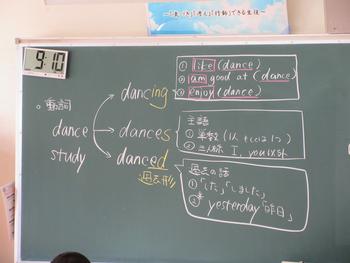 ～「進んで」「考え」「行動」できる生徒～
9:10
dancing
① like (dance)
② am good at (dance)
③ enjoy (dance)
○動詞
dance
study
dances
主語
① 単数 (1人 or 1つ)
② 三人称 I, you以外
danced
過去形
過去の話
①「した」「しました」
② yesterday「昨日」